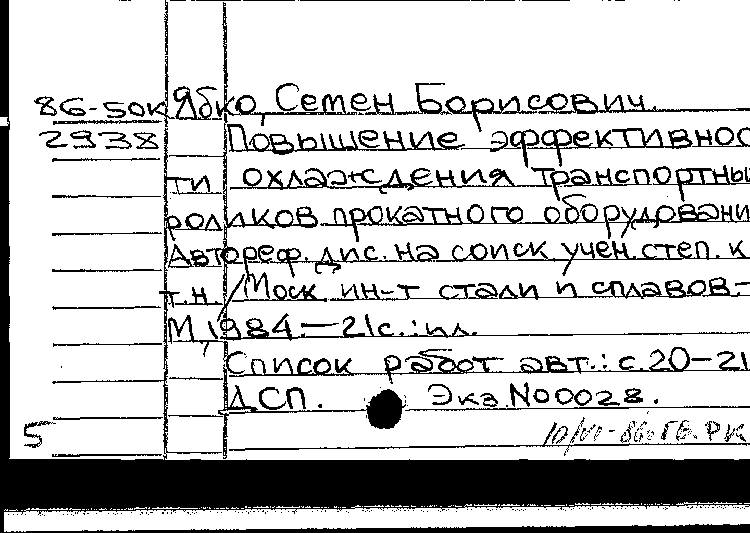 86-50к Ябко, Семен Борисович.
2938 Повышение эффективнос
ти охлаждения транспортны
роликов прокатного оборудовани
Автореф. дис. на соиск учен. степ. к
т.н. / Моск. ин-т стали и сплавов.-
М, 1984.—21с.: ил.
Список работ авт.: с. 20-21
ДСП. Экз. N00028.
5 10/VI-86. ГВ. РК